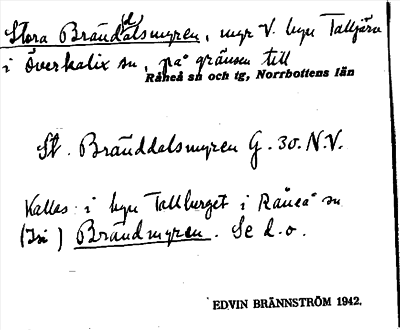 Stora Bränddalsmyren, myr V. byn Talljärv
i Överkalix sn, på gränsen till
Råneå sn och tg, Norrbottens län
St. Bränddalsmyren G. 30. N.V.
Kallas i byn Tallberget i Råneå sn
Brändmyren. Se d. o.
EDVIN BRÄNNSTRÖM 1942.